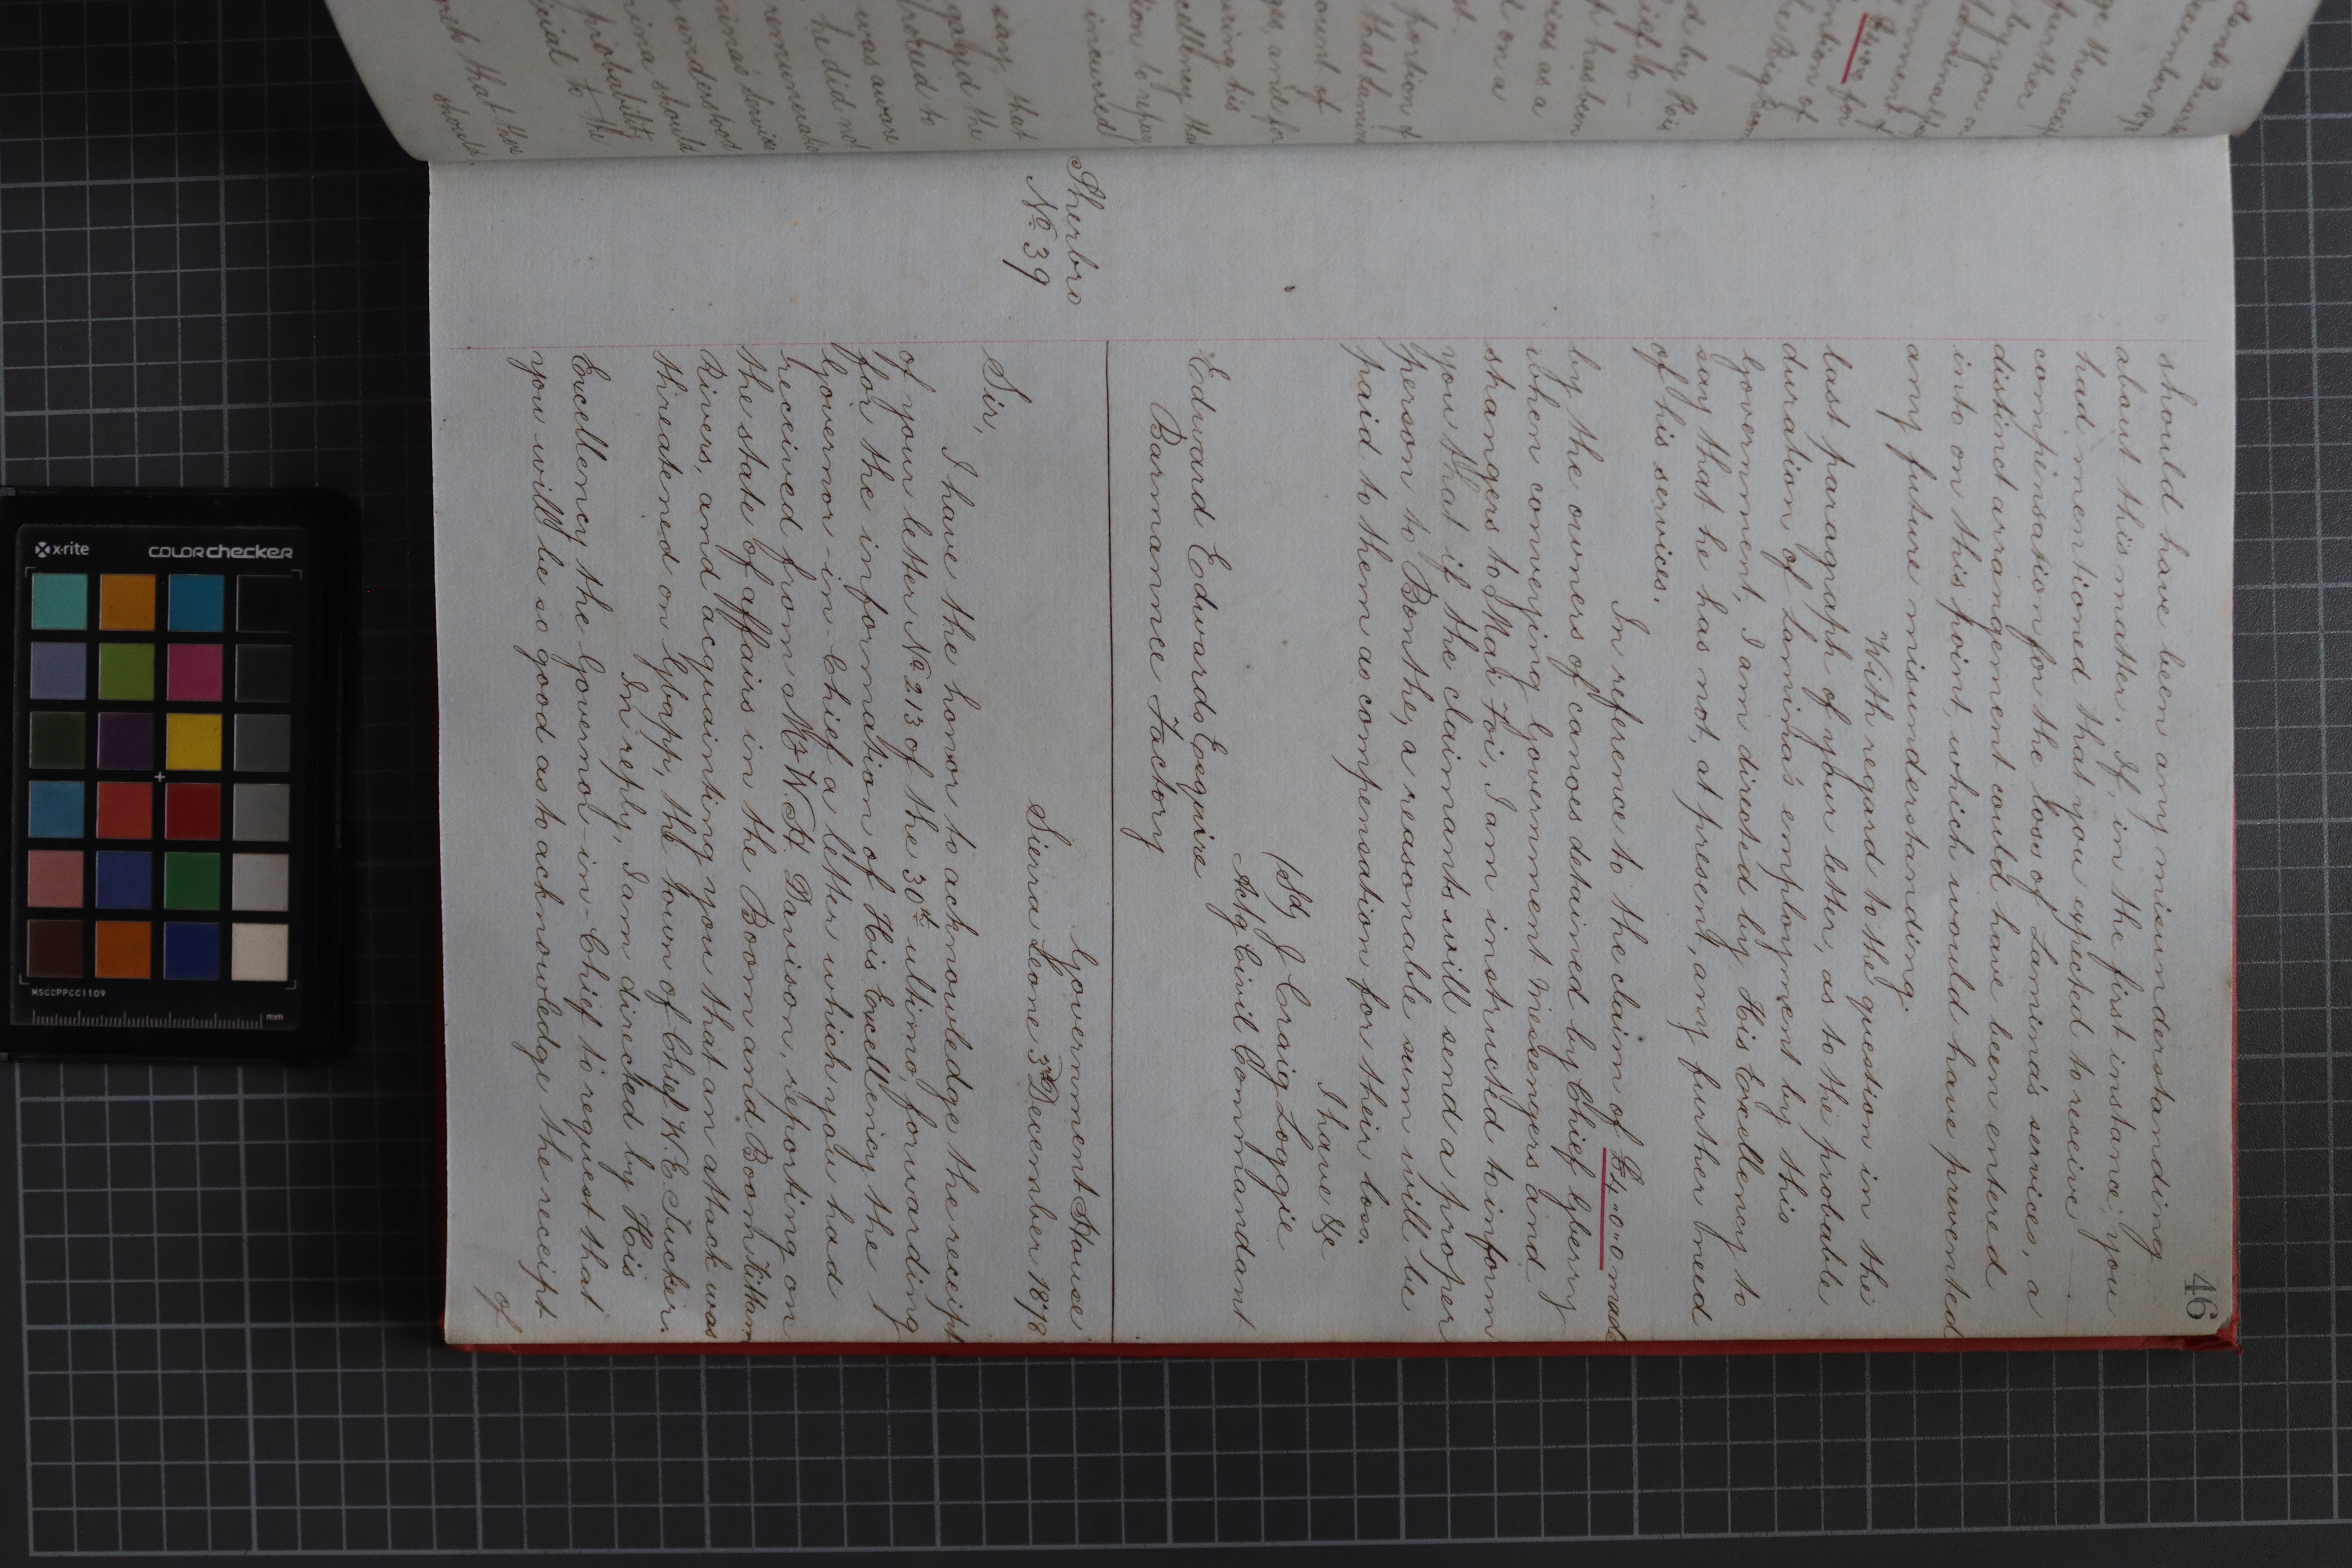 46
should have been any misunderstanding
about this matter. If, in the first instance, you
had mentioned that you expected to receive
compensation for the loss of Lamina's services, a
distinct arrangement could have been entered
into on this point, which would have prevented
any future misunderstanding.
With regard to the question in the
last paragraph of your letter, as to the probable
duration of Lamina's employment by this
Government, I am directed by His Excellency to
say that he has not, at present, any further need
of his services.
In reference to the claim of £4"0"0 made
by the owners of canoes detained by Chief Gberry
when conveying Government Messengers and
strangers to Mah Foi, I am instructed to inform
you that if the claimants will send a proper
person to Bonthe, a reasonable sum will be
paid to them as compensation for their loss.
I have &c
(Sd) J Craig Loggie
Actg Civil Commandant
Edward Edwards Esquire
Barmance Factory
Government House
Sherbro
No 39
Sierra Leone 3rd December 1878
Sir,
I have the honor to acknowledge the receipt
of your letter No 213 of the 30th ultimo, forwarding
for the information of His Excellency the
Governor-in-Chief a letter which you had
received from Mr W. H. Davison, reporting on
the state of affairs in the Boom and Boom Kittam
Rivers, and acquainting you that an attack was
threatened on Gbapp, the town of Chief W. E. Tucker.
In reply, I am directed by His
Excellency the Governor-in-Chief to request that
you will be so good as to acknowledge the receipt
of
x-rite
colorchecker
MSCCPPCC1109
mm